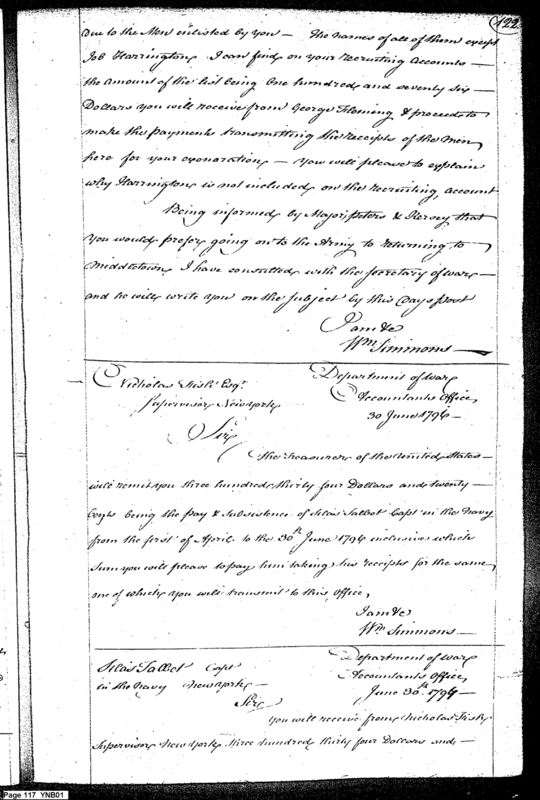 122
due to the Men enlisted by you — The names of all of them except
Job Harrington I can find on your recruiting accounts —
the amount of the list being One hundred and seventy six
Dollars you will receive from George Fleming & proceed to
make the payments transmitting the receipts of the Men
here for your exoneration — You will please to explain
why Harrington is not included on the recruiting account
Being informed by Major Peters & Kersey that
you would prefer going on to the Army to returning to
Middletown I have consulted with the Secretary of War —
and he will write you on the subject by this days post
I am &c
Wm Simmons —
Nicholas Fish Esqr. Department of War
Supervisor New York Accountants Office
30 June 1796 —
Sir
The Treasurer of the United States —
will remit you three hundred thirty four Dollars and twenty
Cents being the pay & Subsistence of Silas Talbot Capt in the Navy
from the first of April to the 30th June 1796 inclusive which
sum you will please to pay him taking his receipts for the same
one of which you will transmit to this Office,
I am &c
Wm Simmons —
Silas Talbot Capt Department of War
in the Navy New York — Accountants Office,
June 30th. 1796 —
Sir
You will receive from Nicholas Fish
Supervisor New York three hundred thirty four Dollars and —
Page 117 YNB01